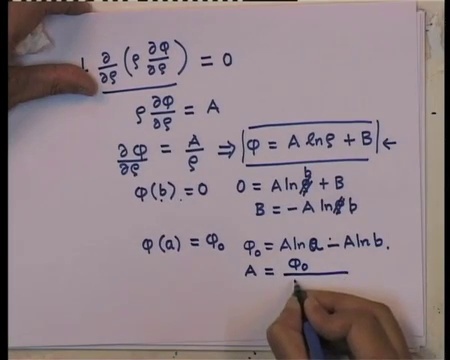 1. ∂/∂ρ (ρ ∂φ/∂ρ) = 0
ρ ∂φ/∂ρ = A
∂φ/∂ρ = A/ρ ⇒ φ = A lnρ + B ←
φ(b) = 0 0 = A ln b + B
B = -A ln b
φ(a) = φ₀ φ₀ = A ln a - A ln b.
A = φ₀